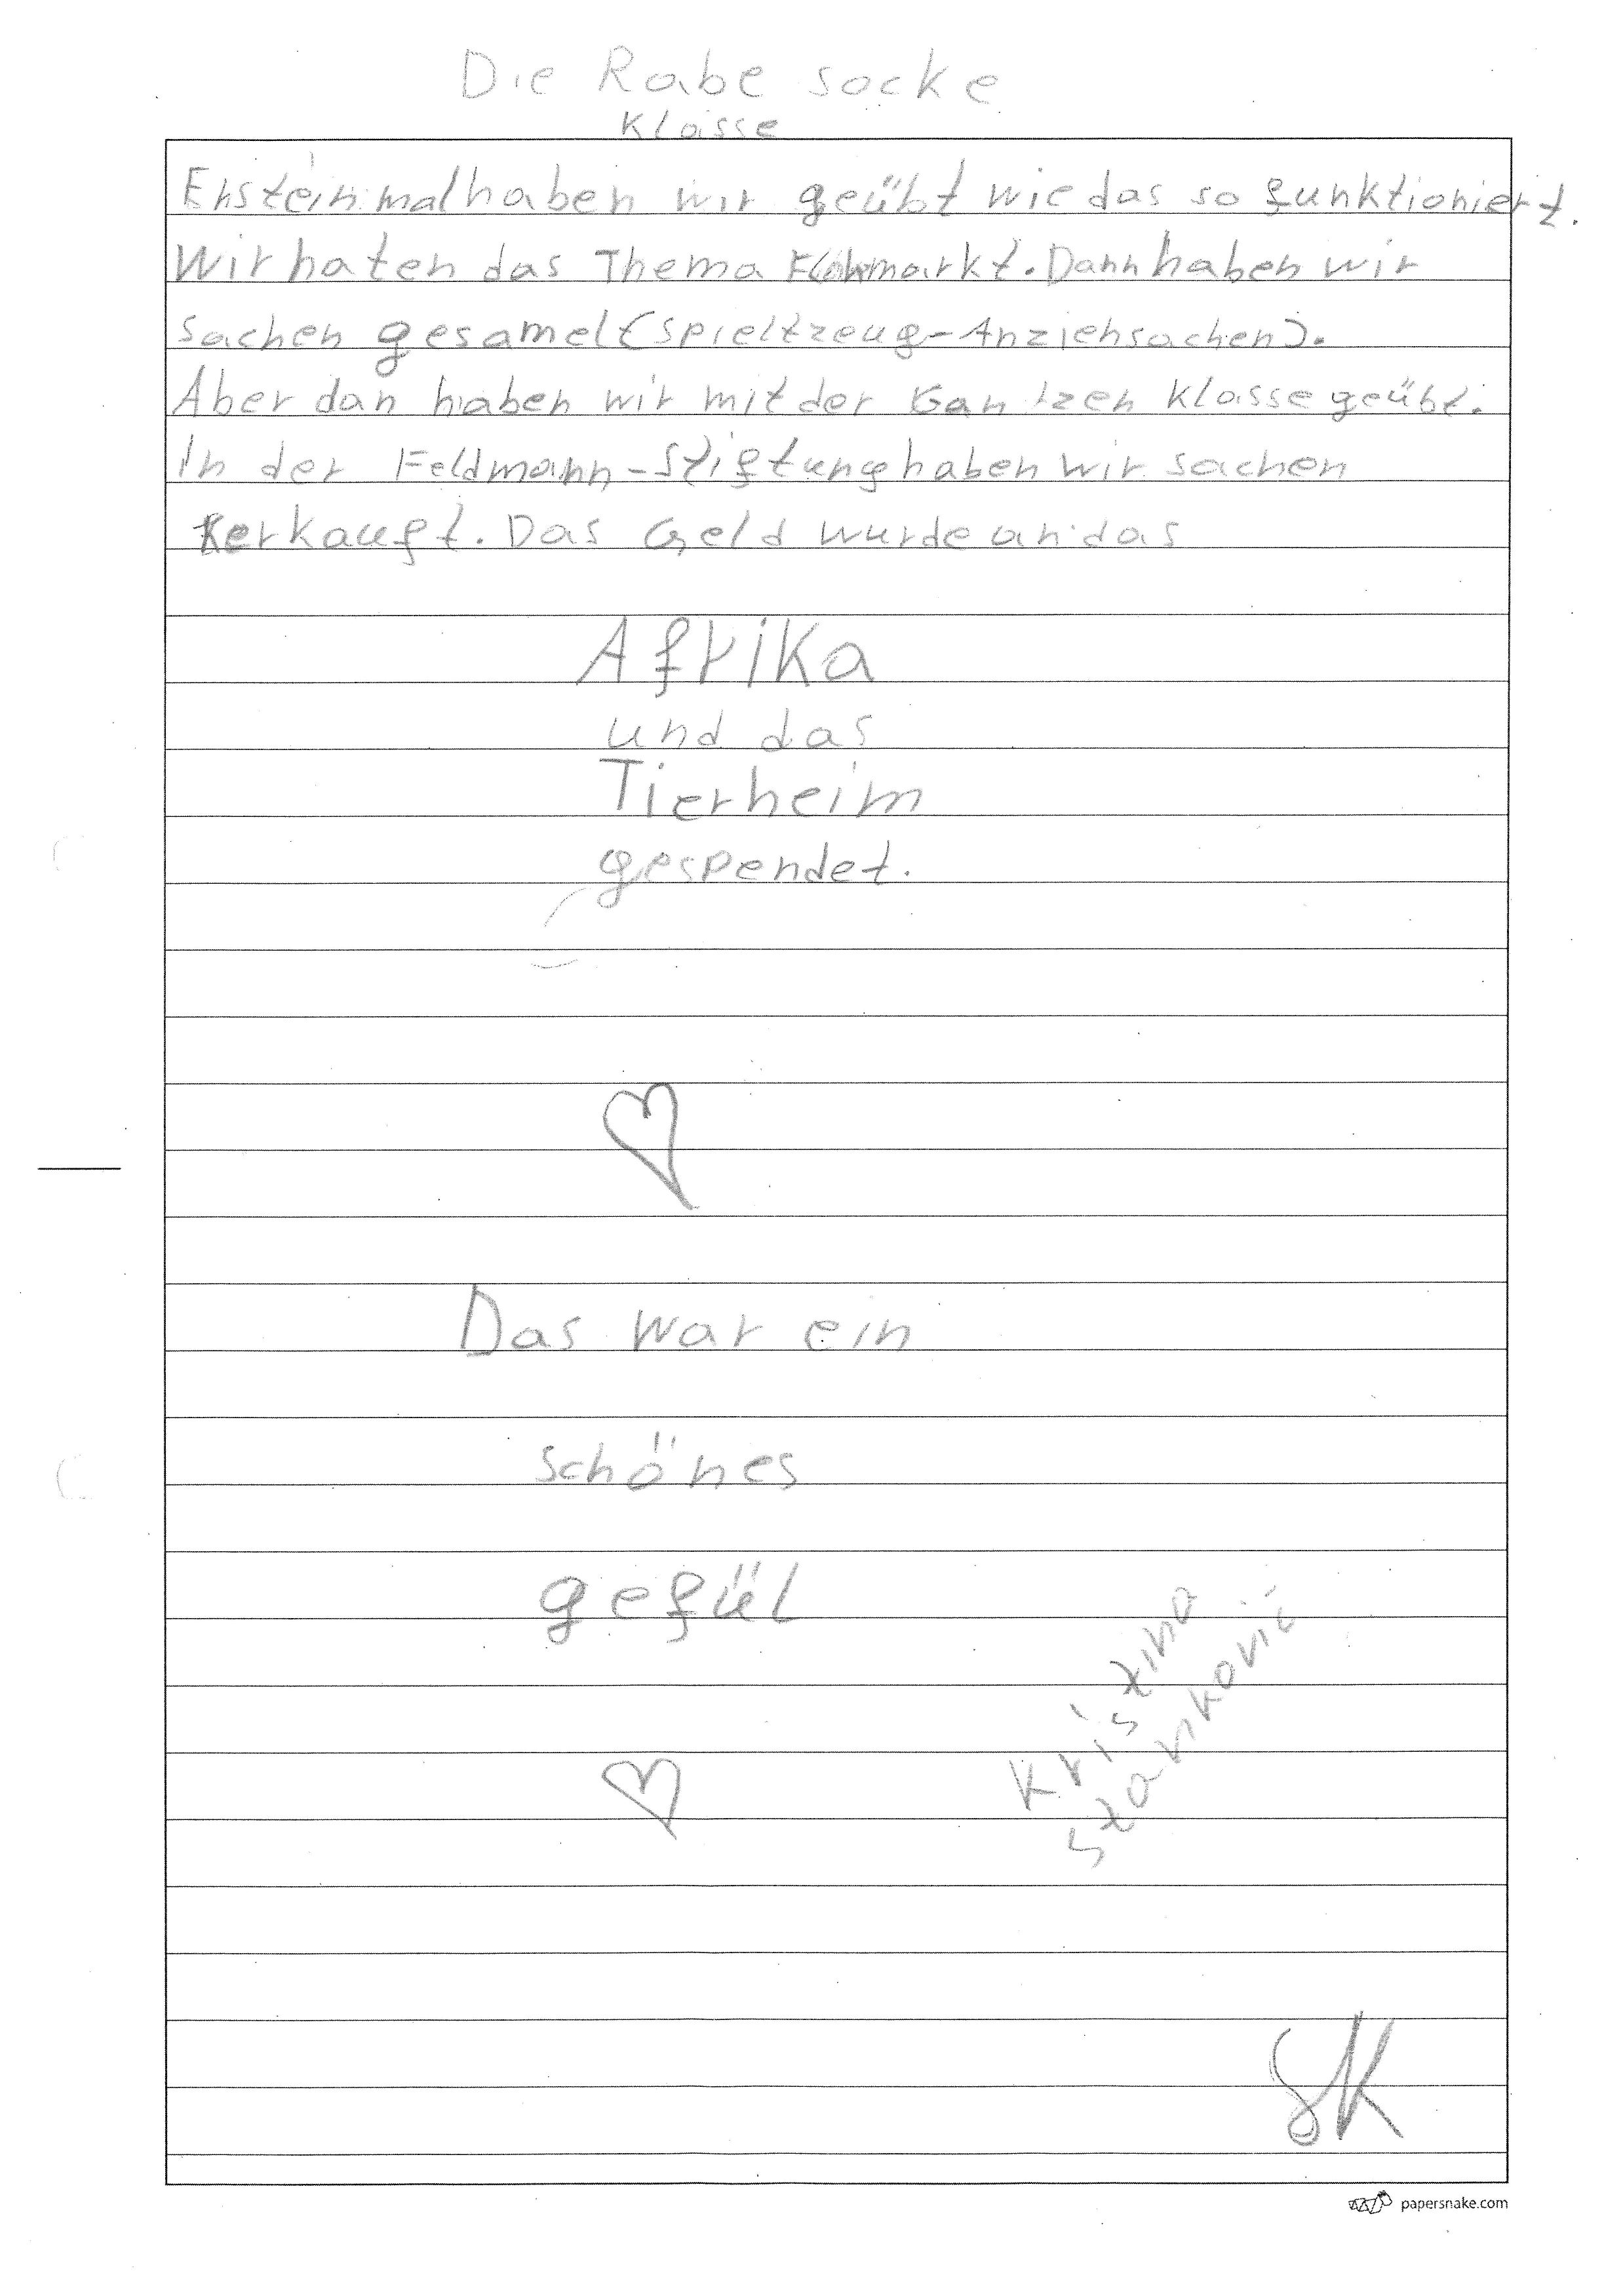 Die Rabe socke
Klasse
Ersteinmal haben wir geübt wie das so funktioniert.
Wir haten das Thema Flohmarkt. Dann haben wir
sachen gesamelt (spieltzeug-Anziehsachen).
Aber dan haben wir mit der Gantzen Klasse geübt.
In der Feldmann-Stiftung haben wir sachen
verkauft. Das Geld wurde an das
Afrika
und das
Tierheim
gespendet.
Das war ein
schönes
gefül
Kristina
stankovic
SK
papersnake.com